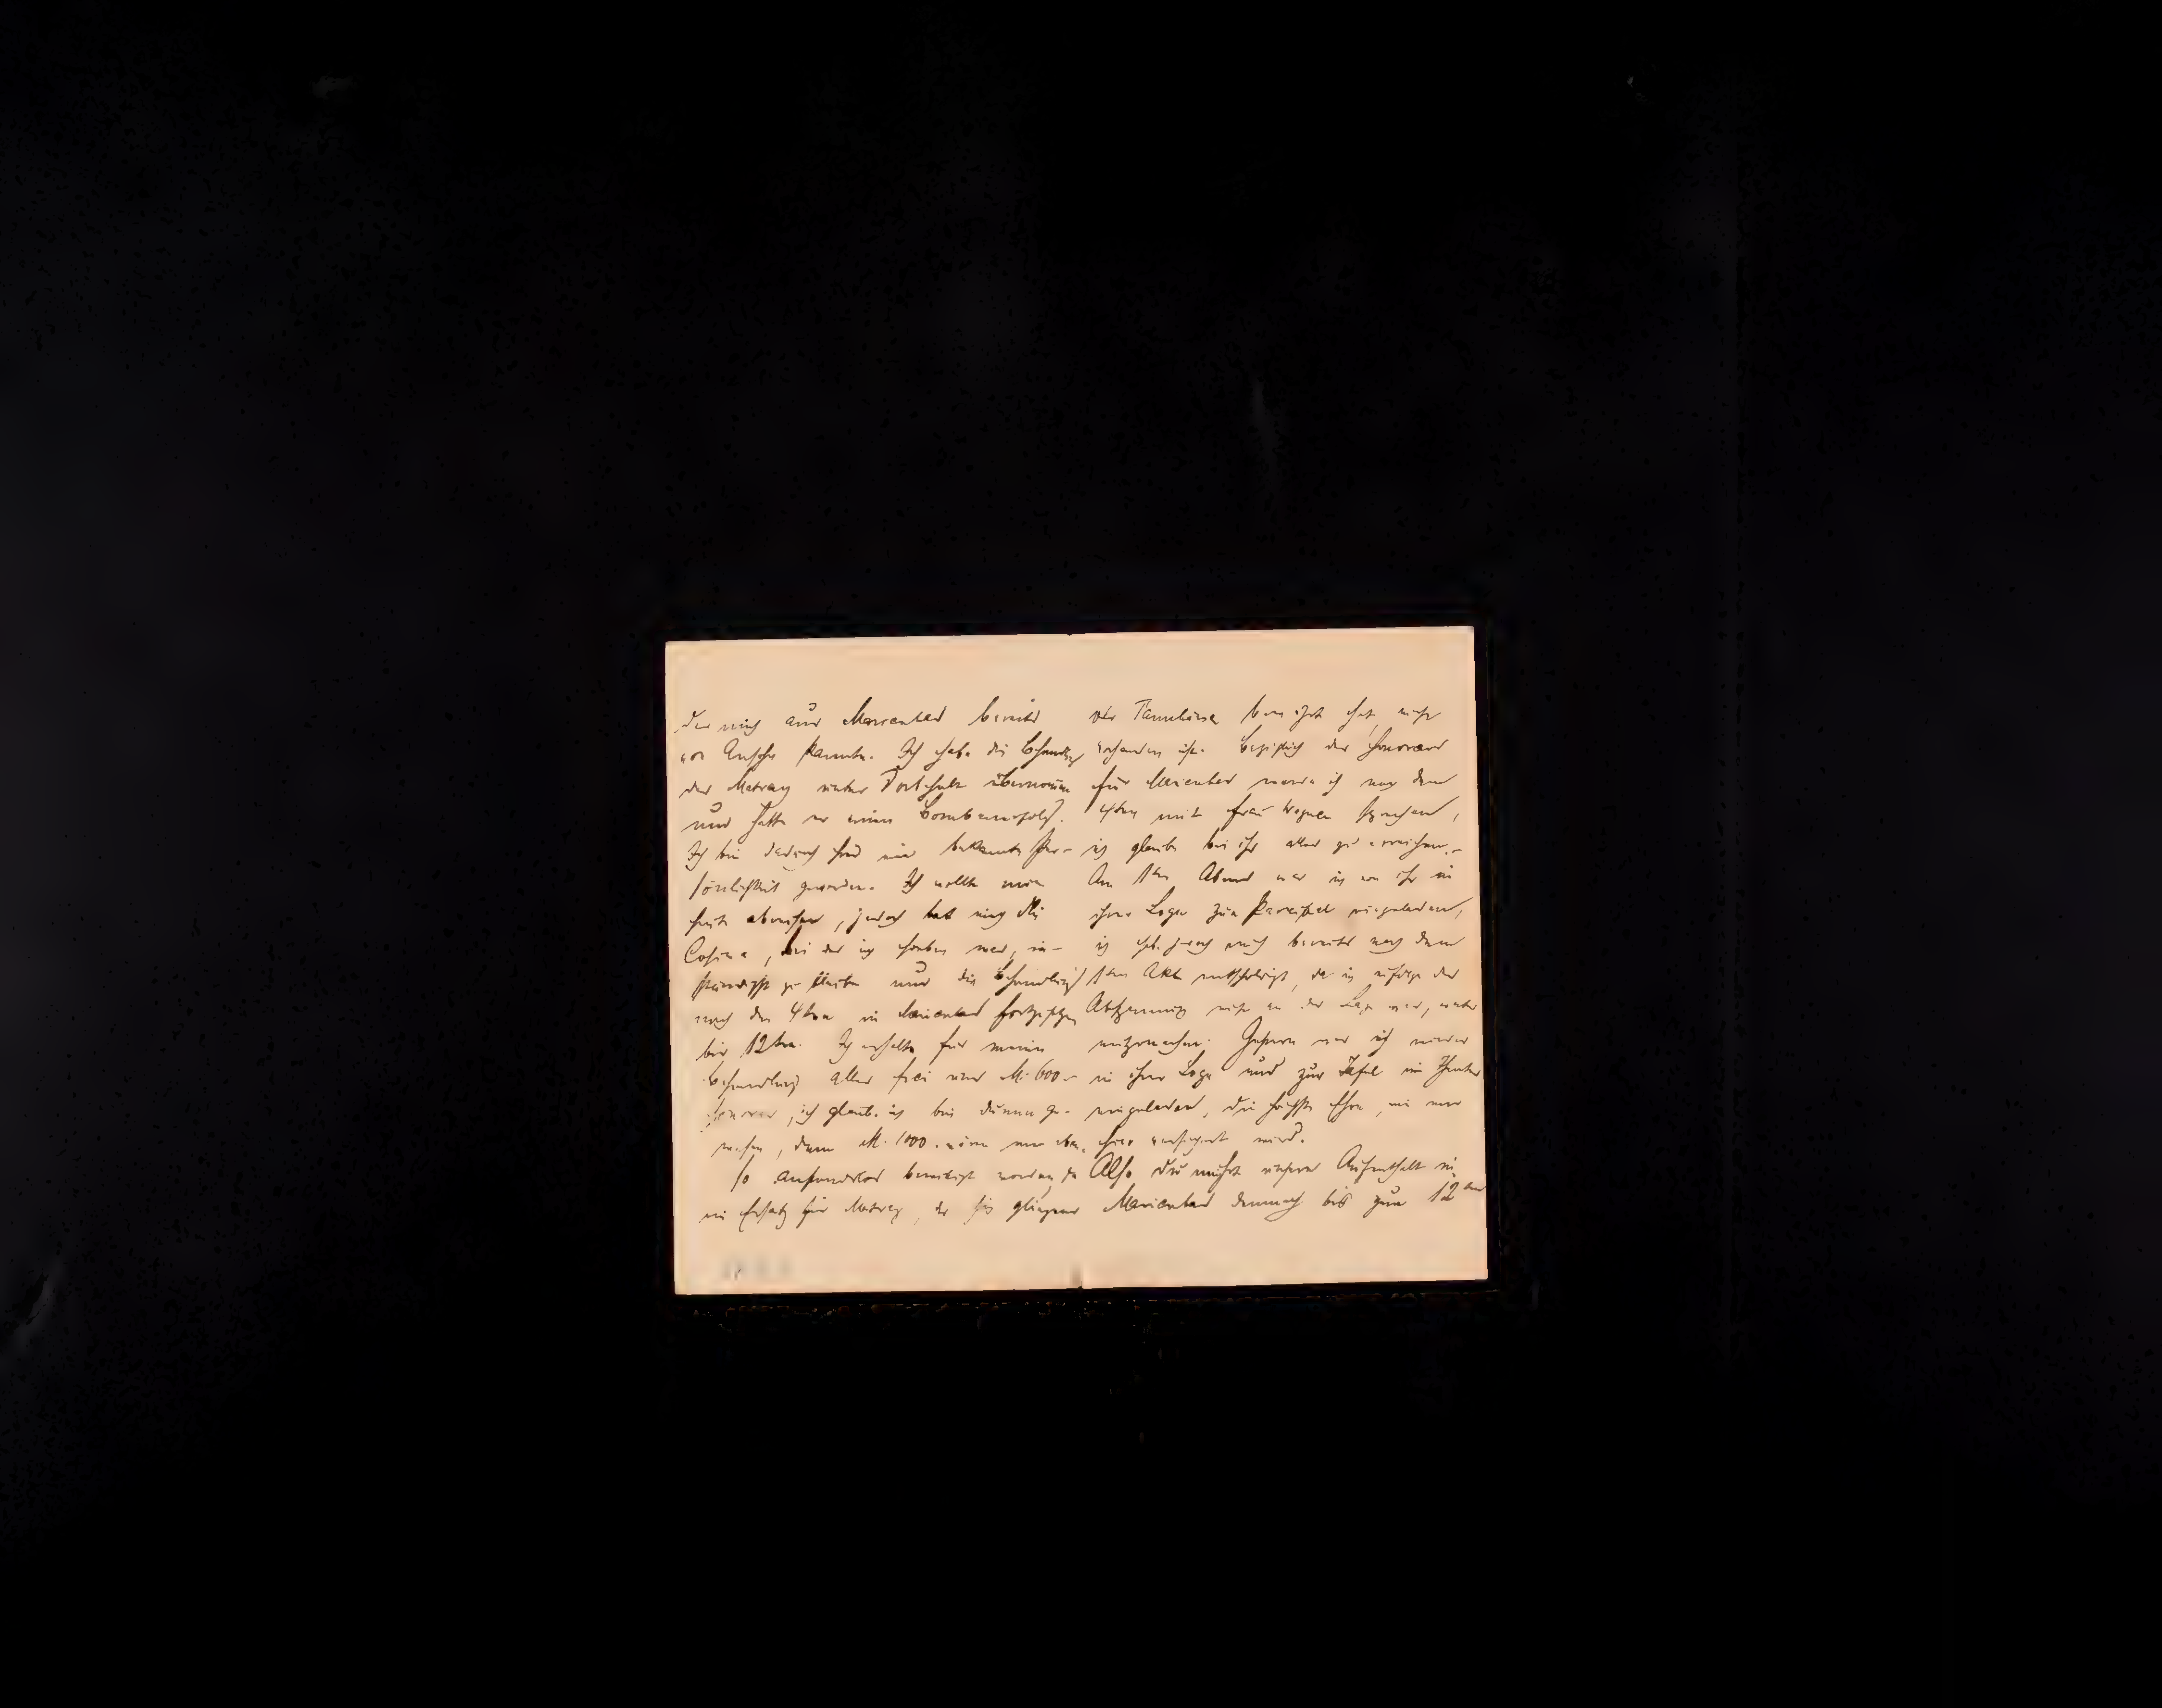 der mich aus Marienbad bereits
von Ansehn kannte. Ich habe die Behandlg
des Matray unter Vorbehalt übernommen
und hatte er einen Bombenerfolg.
Ich bin dadurch hier eine bekannte Per-
sönlichkeit geworden. Ich wollte nun
heute abreisen, jedoch bat mich die
Cosima, bei der ich soeben war, in-
ständigst zu bleiben und die Behandlung
nach dem 4ten in Marienbad fortzusetzen
bis 12ten. Ich erhalte für meine
Behandlung alles frei und M. 600.–
Honorar, ich glaube ich bin dumm ge-
wesen, denn M. 1000. wären mir eben
so anstandslos bewilligt worden, da
ein Ersatz für Matray, der sich
der Tannhäuser hat, nicht
vorhanden ist. Bezüglich des Honorars
für Marienbad werde ich nach dem
4ten mit Frau Wagner sprechen,
ich glaube bei ihr alles zu erreichen.–
Am 1ten Abend war ich von ihr in
ihrer Loge zum Parsifal eingeladen,
ich habe jedoch mich bereits nach dem
1ten Akt entschuldigt, da ich infolge der
Abspannung nicht in der Lage war, weiter
mitzumachen. Gestern war ich wieder
in ihrer Loge und zur Tafel im Theater
eingeladen, die höchste Ehre, die nur
hier verliehen wird.
Also Du mußt unsern Aufenthalt in
Marienbad demnach bis zum 12ten